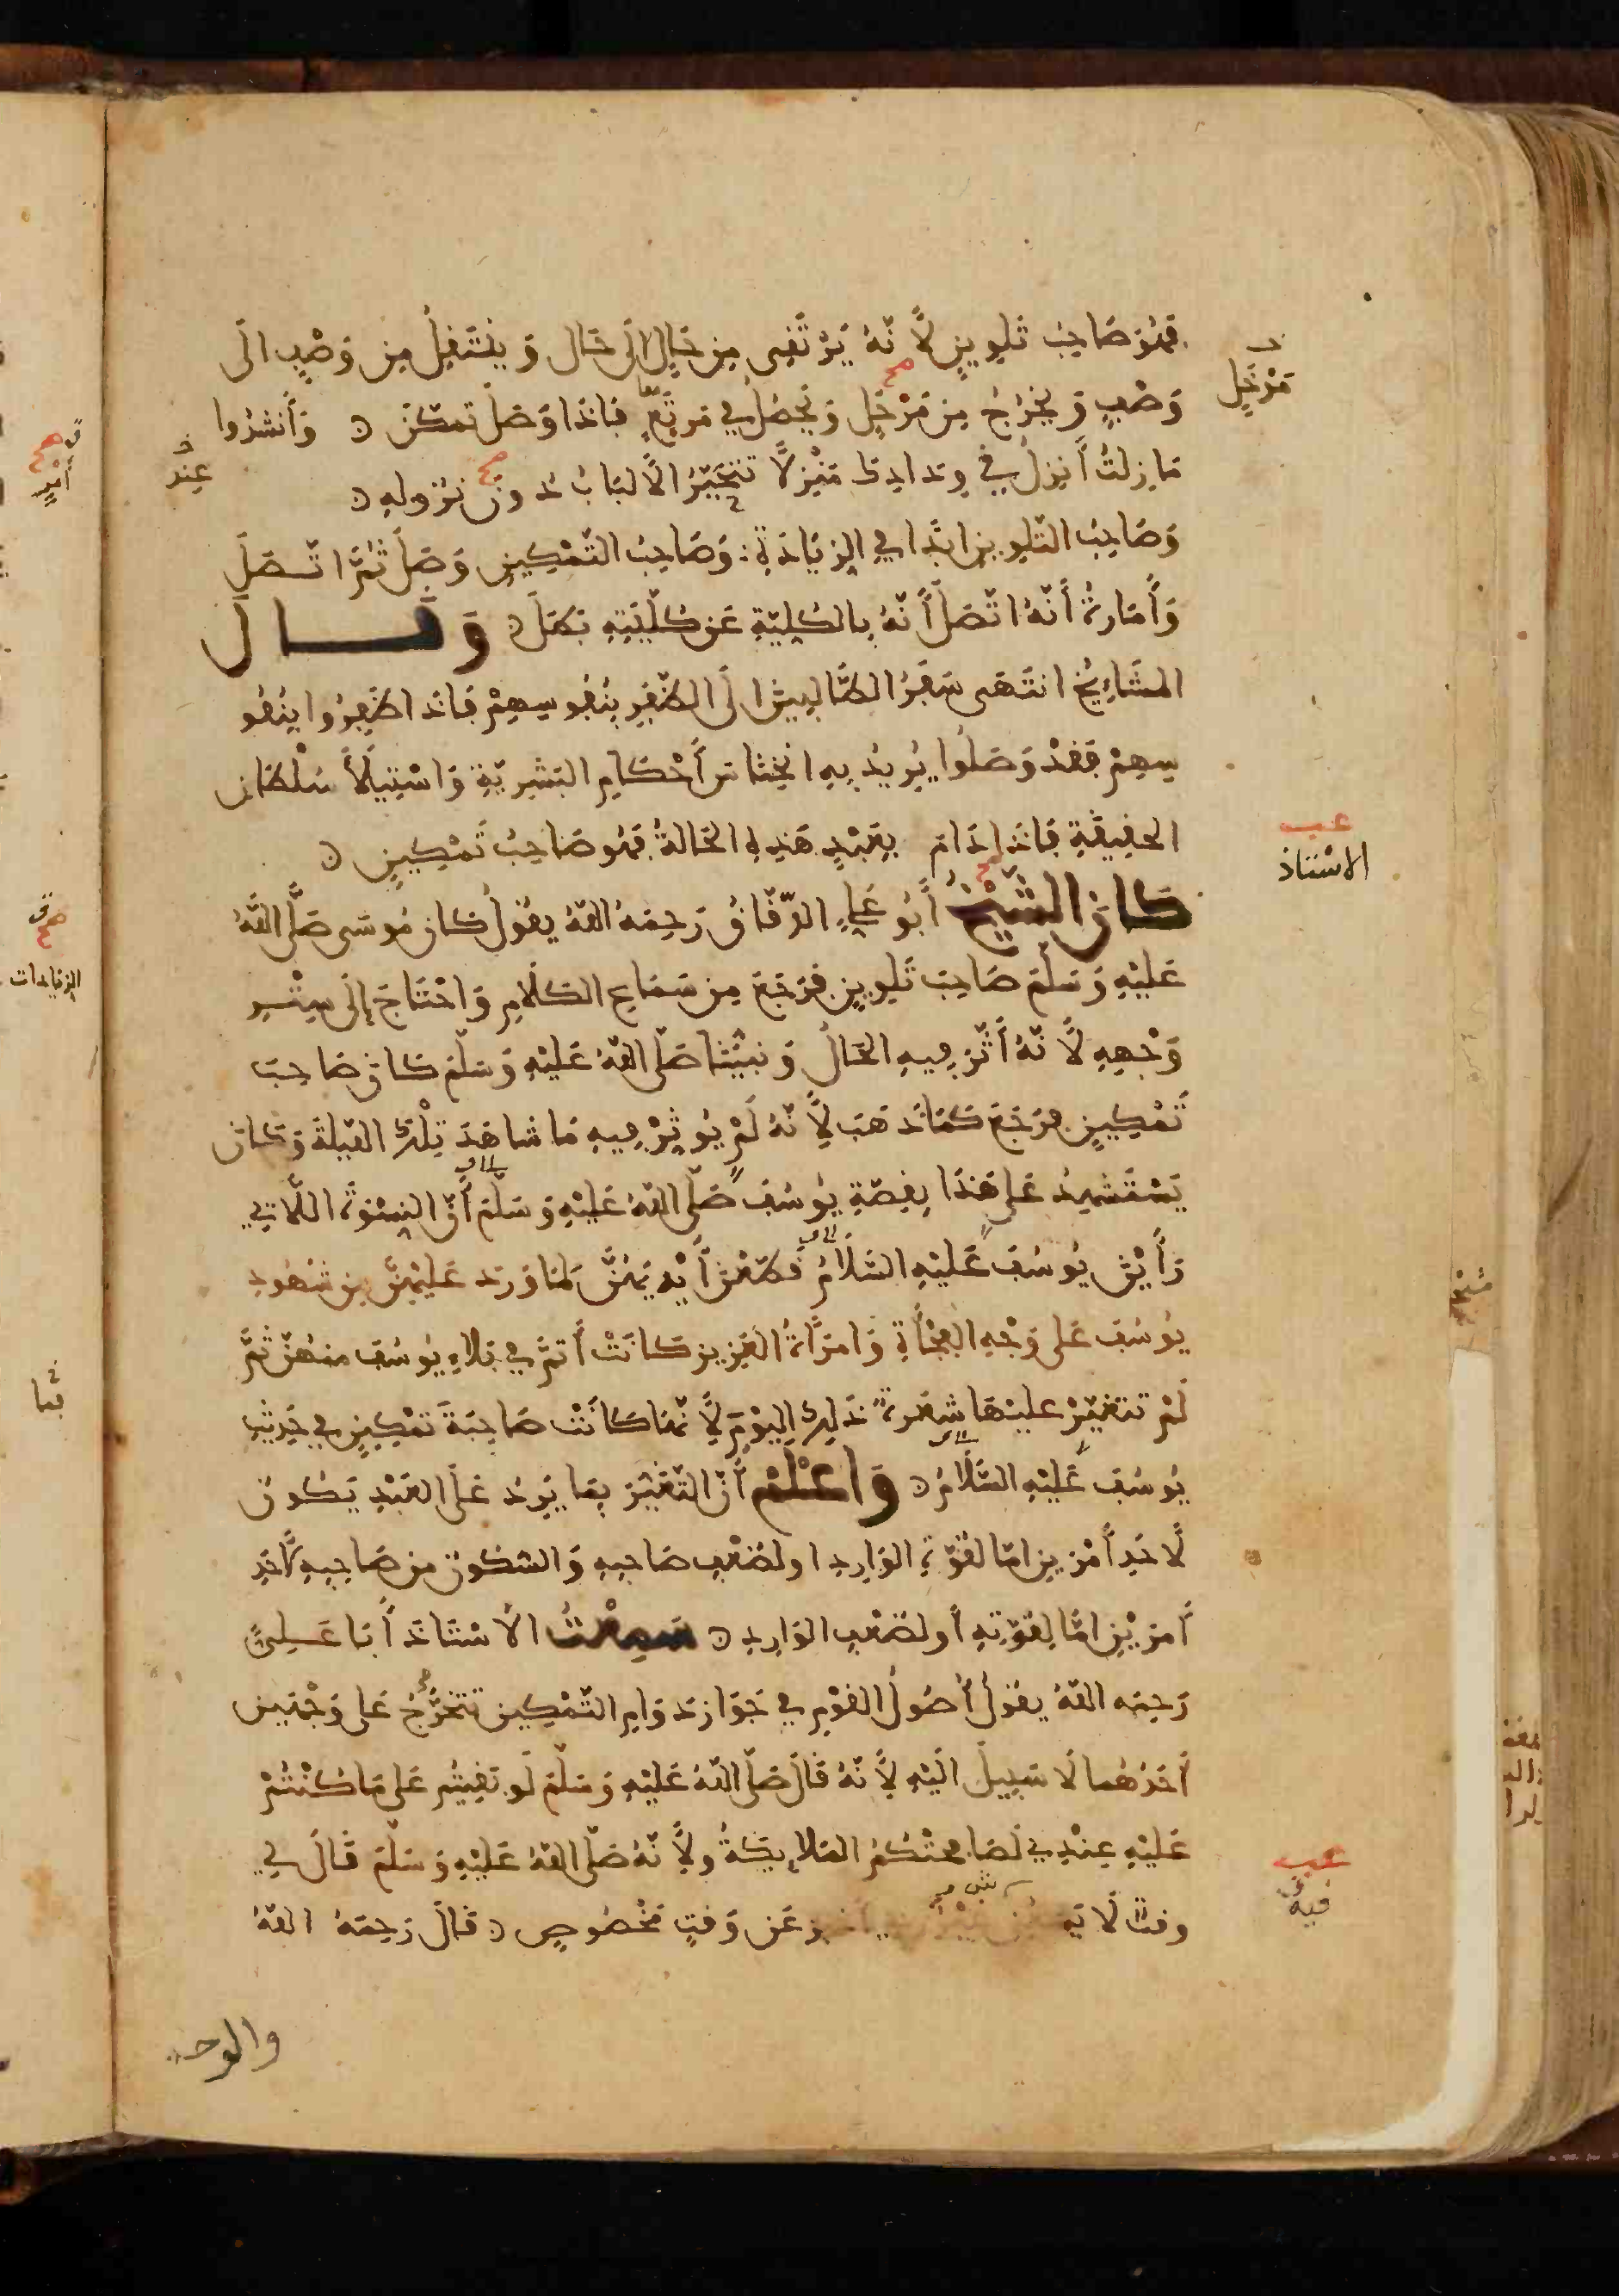 فَهُوَ صَاحِبُ تَلْوِينٍ لأَنَّهُ يَرْتَقِى مِن حَالٍ إلَى حَال وَيَنْتَقِلُ مِن وَصْفٍ الَى
وَصْفٍ وَيَخْرُجُ مِن مَرْحَلٍ وَيَحْصُلُ في مَرْبَعٍ فَاذَا وَصَلَ تمكَّنَ وَأَنشَدُوا
مَا زِلتُ أَنزِلُ في وِدَادِكَ مَنْزِلًا تتَحَيَّرُ الأَلبَابُ دُونَ نزُولِهِ
وَصَاحِبُ التَّلوِينِ ابَدًا فِي الزِيَادَةِ وَصَاحِبُ التَّمْكِينِ وَصَلَ ثُمَّ اتَّصَلَ
وَأَمَارةُ أَنَّهُ اتَّصَلَ أَنَّهُ بِالكُلِيَّةِ عَن كُلّيَّتِهِ بَطَلَ وَقَال
المشَايِخُ انتَهَى سَفَرُ الطَّالِبِينَ الَى الظَّفَرِ بِنُفُوسِهِمْ فَاذَا ظَفِرُوا بِنُفُو
سِهِمْ فَقَدْ وَصَلُوا يُرِيدُ بِهِ انْخِنَاسَ أَحْكَامِ البَشَرِيّةِ وَاسْتِيلَاءَ سُلْطَانِ
الحَقِيقَةِ فَاذَا دَامَ بِعَبْدٍ هَذِهِ الحَالَةُ فَهُو صَاحِبُ تَمْكِينٍ
كَانَ الشَّيْخُ أَبُو عَلِي الدَّقَّاقُ رَحِمَهُ اللهُ يقُولُ كَان مُوسَى صَلَّى اللَّهُ
عَلَيْهِ وَسَلَّمَ صَاحِبَ تَلوِينٍ فَرَجَعَ مِن سَمَاعِ الكَلَامِ وَاحْتَاجَ إلَى سِتْرِ
وَجْهِهِ لأَنَّهُ أَثَّرَ فِيهِ الحَالُ وَنَبِيُّنَا صَلَّى اللهُ عَلَيْهِ وَسَلَّمَ كَانَ صَاحِبَ
تَمْكِينٍ فرَجَعَ كَمَا ذَهَبَ لأَنَّهُ لَمْ يُوثِرْ فِيهِ مَا شَاهَدَ تِلْكَ اللَّيلَةَ وَكَانَ
يَسْتَشْهِدُ عَلى هَذَا بِقِصَّةِ يُوسُفَ صَلَّى اللهُ عَلَيْهِ وَسَلَّمَ أَنَّ النِسْوَةَ اللَّاتي
رَأَيْنَ يُوسُفَ عَلَيْهِ السَّلَامُ قَطَّعْنَ أَيْدِيَهُنَّ لَمَّا وَرَدَ عَلَيْهِنَّ مِن شُهُودِ
يُوسُفَ عَلى وَجْهِ الفَجْأَةِ وَامرَأَةُ العَزِيزِ كَانَتْ أَتَمَّ في بَلَاءِ يُوسُفَ منهُنَّ ثُمَّ
لَمْ تتغيَّرْ عليْهَا شَعَرةٌ ذَلِكَ اليَوْمَ لأَنَّهَا كَانَتْ صَاحِبَةَ تَمْكِينٍ فِي حَدِيثِ
يُوسُفَ عَلَيْهِ السَّلَامُ وَاعْلَمْ أَنَّ التَّغَيُّرَ بِمَا يَرِدُ عَلَى العَبْدِ يَكُونُ
لأَحَدِ أَمْرَيْنِ امّا لقُوَّةِ الوَارِدِ اولضَعْفِ صَاحِبِهِ وَالسُّكُونُ مِن صَاحِبِهِ لأَحَدِ
أَمرَيْنِ امَّا لِقُوَّتِهِ أَو لضَعْفِ الوَارِدِ سَمِعْتُ الأُسْتَاذَ أَبَا عَلِيٍّ
رَحِمَهُ اللهُ يقُولُ أُصُولُ القَوْمِ في جَوَازِ دَوَامِ التَّمْكِينِ تتَخَرَّجُ عَلى وَجْهَينِ
أَحَدُهُمَا لَا سَبِيلَ الَيْهِ لأَنَّهُ قَالَ صَلَّى اللهُ عَلَيْهِ وَسَلَّمَ لَو بَقِيتُم عَلى مَا كُنْتُمْ
عَلَيْهِ عِنْدِي لَصَافَحَتْكُمُ المَلَايِكَةُ ولأَنَّهُ صَلَّى اللهُ عَلَيْهِ وَسَلَّمَ قَالَ لِي
وقتٌ لَا عَن وَقتٍ مَخْصُوصٍ قَالَ رَحِمَهُ اللهُ
مَرْحَلٍ
عِند
الاسْتاذ
فيه
والوجه